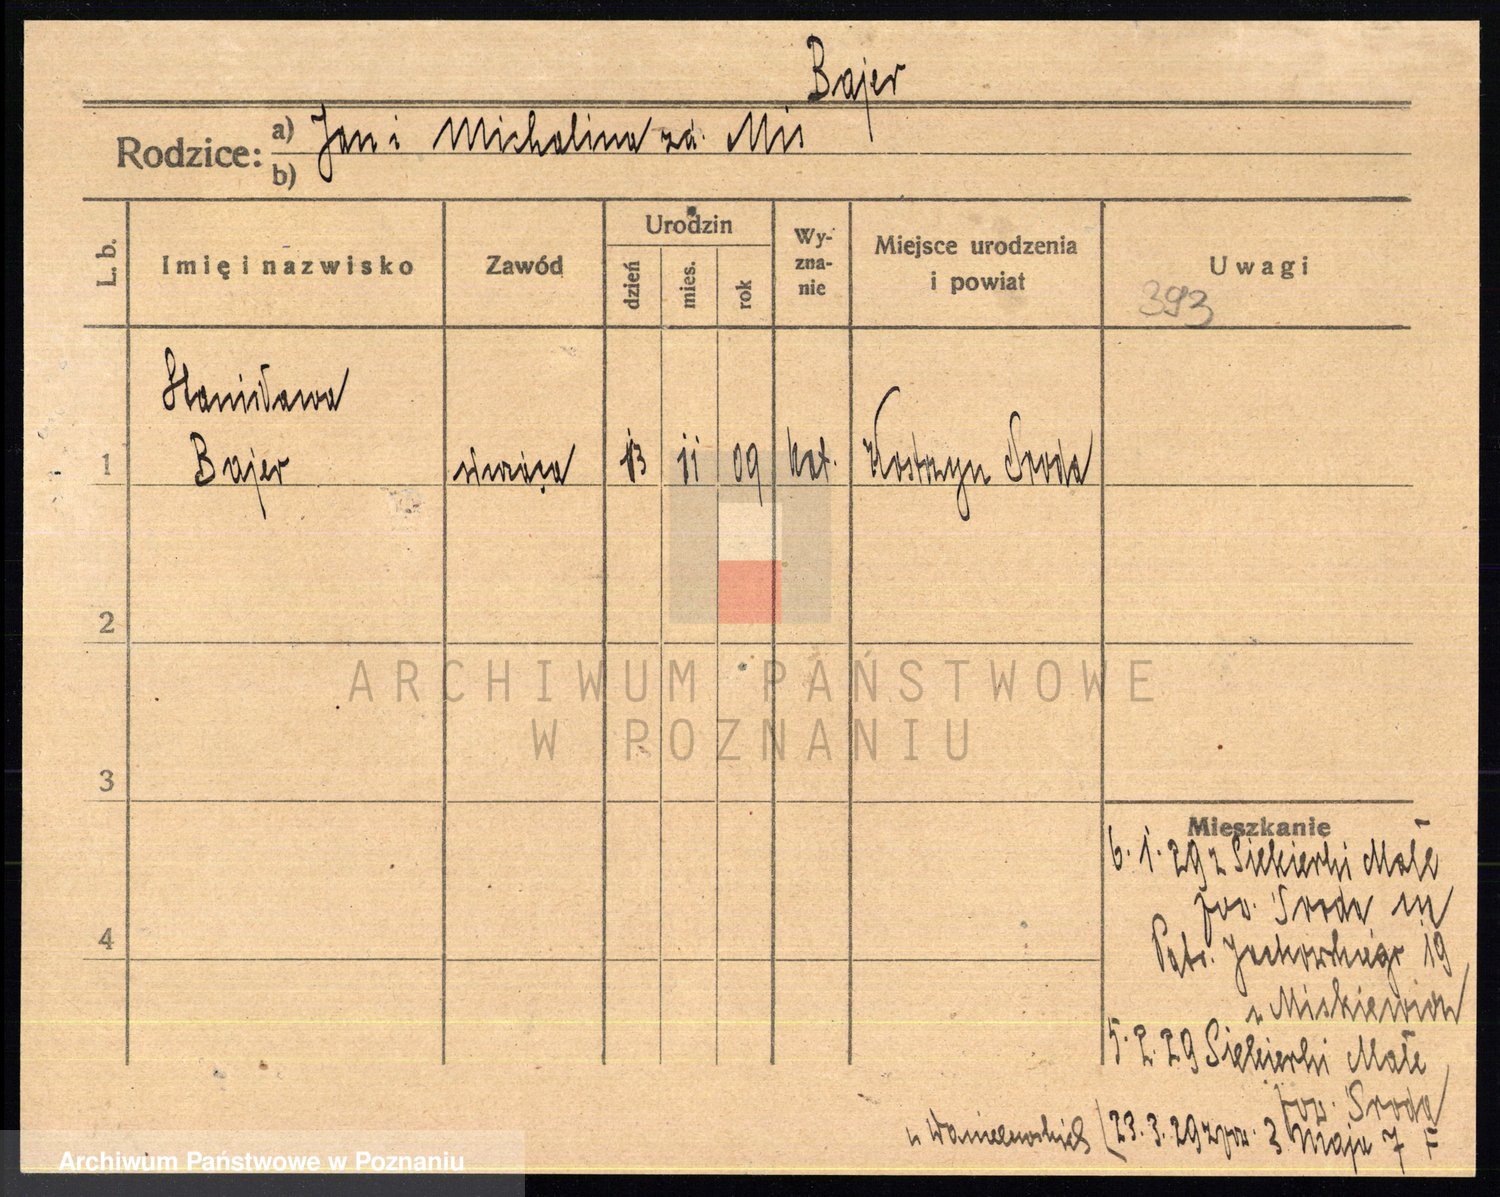 Bajer
Rodzice:
a) Jan i Michalina zd. Mis
b)
L. b.
Imię i nazwisko
Zawód
Urodzin
dzień
mies.
rok
Wy-
zna-
nie
Miejsce urodzenia
i powiat
Uwagi
393
Stanisława
1 Bajer służąca 13 11 09 kat. Kostrzyn Środa
2
3
4
ARCHIWUM PAŃSTWOWE
W POZNANIU
Mieszkanie
6. 1. 29 z Siekierki Małe
pow. Środa
19
u Miskiewicz
5. 2. 29 Siekierki Małe
pow. Środa
23. 3. 29 3 Maja 7
Archiwum Państwowe w Poznaniu